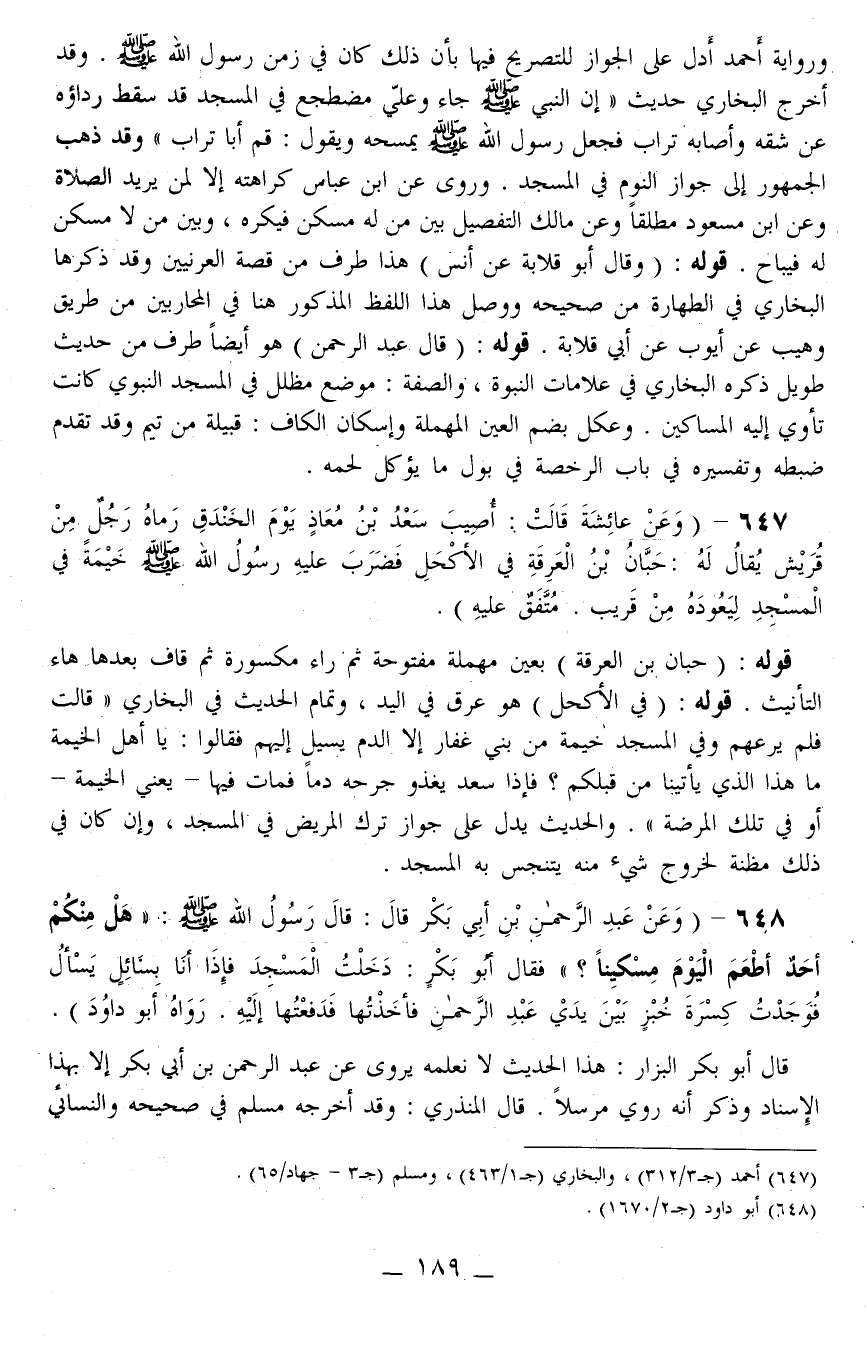 ورواية أَحمد أَدل على الجواز للتصريح فيها بأن ذلك كان في زمن رسول الله ﷺ . وقد
أخرج البخاري حديث « إن النبي ﷺ جاء وعليّ مضطجع في المسجد قد سقط رداؤه
عن شقه وأصابه تراب فجعل رسول الله ﷺ يمسحه ويقول : قم أبا تراب » وقد ذهب
الجمهور إلى جواز النوم في المسجد . وروى عن ابن عباس كراهته إلا لمن يريد الصلاة
وعن ابن مسعود مطلقاً وعن مالك التفصيل بين من له مسكن فيكره ، وبين من لا مسكن
له فيباح . قوله : ( وقال أبو قلابة عن أنس ) هذا طرف من قصة العرنيين وقد ذكرها
البخاري في الطهارة من صحيحه ووصل هذا اللفظ المذكور هنا في المحاربين من طريق
وهيب عن أيوب عن أبي قلابة . قوله : ( قال عبد الرحمن ) هو أيضاً طرف من حديث
طويل ذكره البخاري في علامات النبوة ، والصفة : موضع مظلل في المسجد النبوي كانت
تأوي إليه المساكين . وعكل بضم العين المهملة وإسكان الكاف : قبيلة من تيم وقد تقدم
ضبطه وتفسيره في باب الرخصة في بول ما يؤكل لحمه .
٦٤٧ – ( وَعَنْ عائِشَةَ قَالَتْ : أُصِيبَ سَعْدُ بْنُ مُعَاذٍ يَوْمَ الخَنْدَقِ رَماهُ رَجُلٌ مِنْ
قُرَيْش يُقالُ لَهُ : حَبَّانُ بْنُ الْعَرِقَةِ في الأكْحَلِ فَضَرَبَ عليهِ رسُولُ الله ﷺ خَيْمَةً في
الْمَسْجِدِ لِيَعُودَهُ مِنْ قَريب . مُتَّفَقٌ عليهِ ) .
قوله : ( حبان بن العرقة ) بعين مهملة مفتوحة ثم راء مكسورة ثم قاف بعدها هاء
التأنيث . قوله : ( في الأكحل ) هو عرق في اليد ، وتمام الحديث في البخاري « قالت
فلم يرعهم وفي المسجد خيمة من بني غفار إلا الدم يسيل إليهم فقالوا : يا أهل الخيمة
ما هذا الذي يأتينا من قبلكم ؟ فإذا سعد يغذو جرحه دماً فمات فيها – يعني الخيمة –
أو في تلك المرضة » . والحديث يدل على جواز ترك المريض في المسجد ، وإن كان في
ذلك مظنة لخروج شيء منه يتنجس به المسجد .
٦٤٨ – ( وَعَنْ عَبدِ الرَّحمٰنِ بْنِ أبي بَكْر قالَ : قالَ رَسُولُ الله ﷺ : « هَلْ مِنْكُمْ
أحَدٌ أطْعَمَ الْيَوْمَ مِسْكيناً ؟ » فقال أبُو بَكْرٍ : دَخَلْتُ الْمَسْجِدَ فإِذَا أنَا بِسَائِلٍ يَسْألُ
فَوَجَدْتُ كِسْرَةَ خُبْزٍ بَيْنَ يدَيْ عَبْدِ الرَّحمٰنِ فأخَذْتُها فَدَفَعْتُها إلَيْهِ . رَوَاهُ أبو داوُدَ ) .
قال أبو بكر البزار : هذا الحديث لا نعلمه يروى عن عبد الرحمن بن أبي بكر إلا بهذا
الإسناد وذكر أنه روي مرسلاً . قال المنذري : وقد أخرجه مسلم في صحيحه والنسائي
(٦٤٧) أحمد (جـ٣/٣١٢) ، والبخاري (جـ١/٤٦٣) ، ومسلم (جـ٣ – جهاد/٦٥) .
(٦٤٨) أبو داود (جـ٢/١٦٧٠) .
— ١٨٩ —